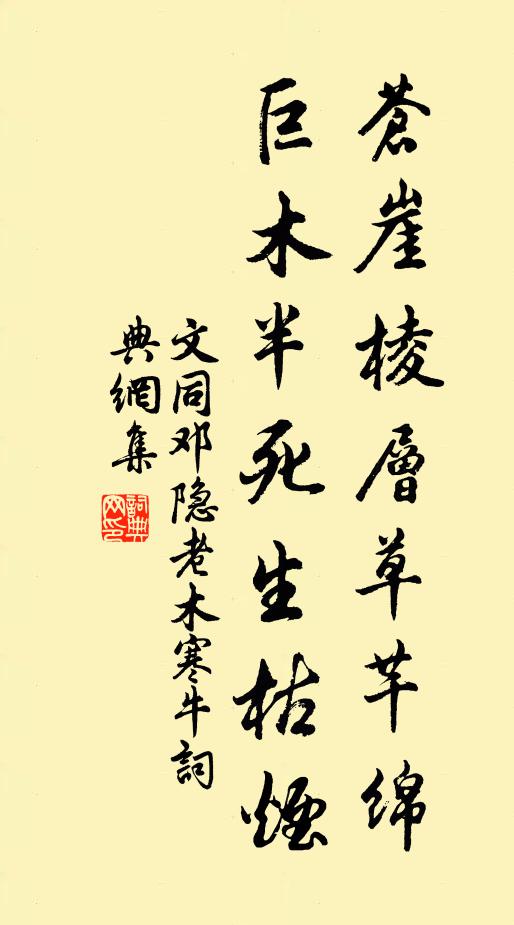 蒼崖棱層草芊绵
巨木半死生枯煙
文同邓隐老木寒牛詞
典網集
詞典
网印